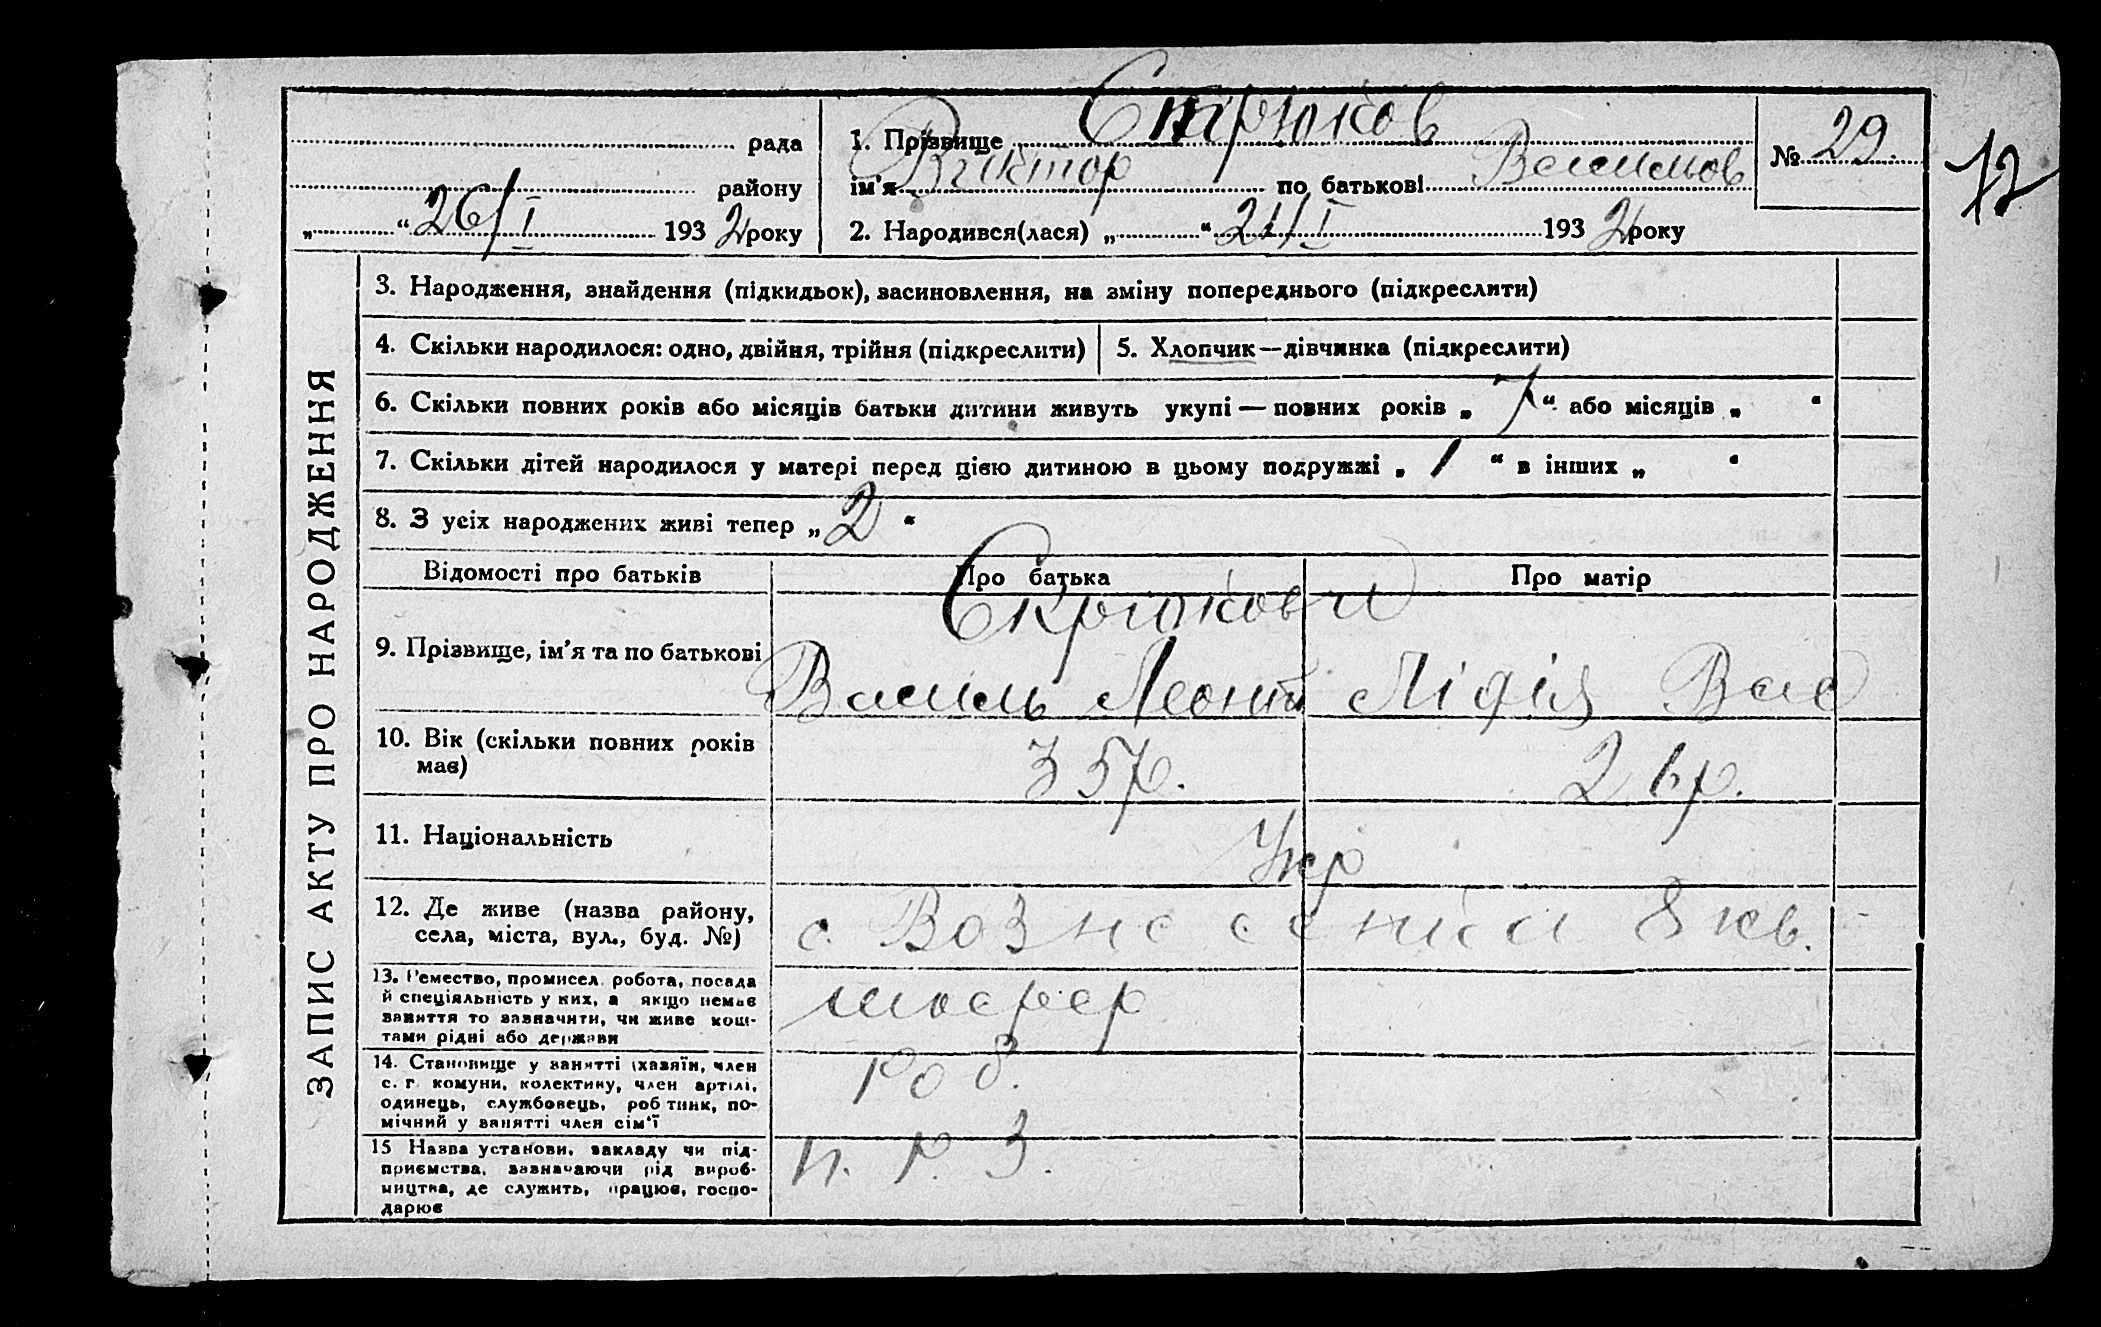 Стрюков
рада 1. Прізвище
Віктор Васильов № 29. 12
району ім'я по батькові
„ “ 26/I 1932 року 2. Народився(лася) „ “ 21/I 1932 року
ЗАПИС АКТУ ПРО НАРОДЖЕННЯ
3. Народження, знайдення (підкидьок), засиновлення, на зміну попереднього (підкреслити)
4. Скільки народилося: одно, двійня, трійня (підкреслити) 5. Хлопчик—дівчинка (підкреслити)
6. Скільки повних років або місяців батьки дитини живуть укупі — повних років „ 7 “ або місяців „ “
7. Скільки дітей народилося у матері перед цією дитиною в цьому подружжі „ 1 “ в інших „ “
8. З усіх народжених живі тепер „ 2 “
Відомості про батьків Про батька Про матір
Скрюкови
9. Прізвище, ім'я та по батькові
Василь Леонт Лідія Вас
10. Вік (скільки повних років
має) 35р. 26р.
11. Національність Укр
12. Де живе (назва району,
села, міста, вул., буд. №) с. Вознесенка 8 кв.
13. Ремество, промисел, робота, посада
й спеціяльність у них, а якщо немає
заняття то зазначити, чи живе кош-
тами рідні або держави
шофер
14. Становище у занятті (хазяїн, член
с. г. комуни, колективу, член артілі,
одинець, службовець, робітник, по-
мічний у занятті член сім'ї
роб.
15 Назва установи, закладу чи під-
приємства, зазначаючи рід вироб-
ництва, де служить, працює, госпо-
дарює
п. р. З.